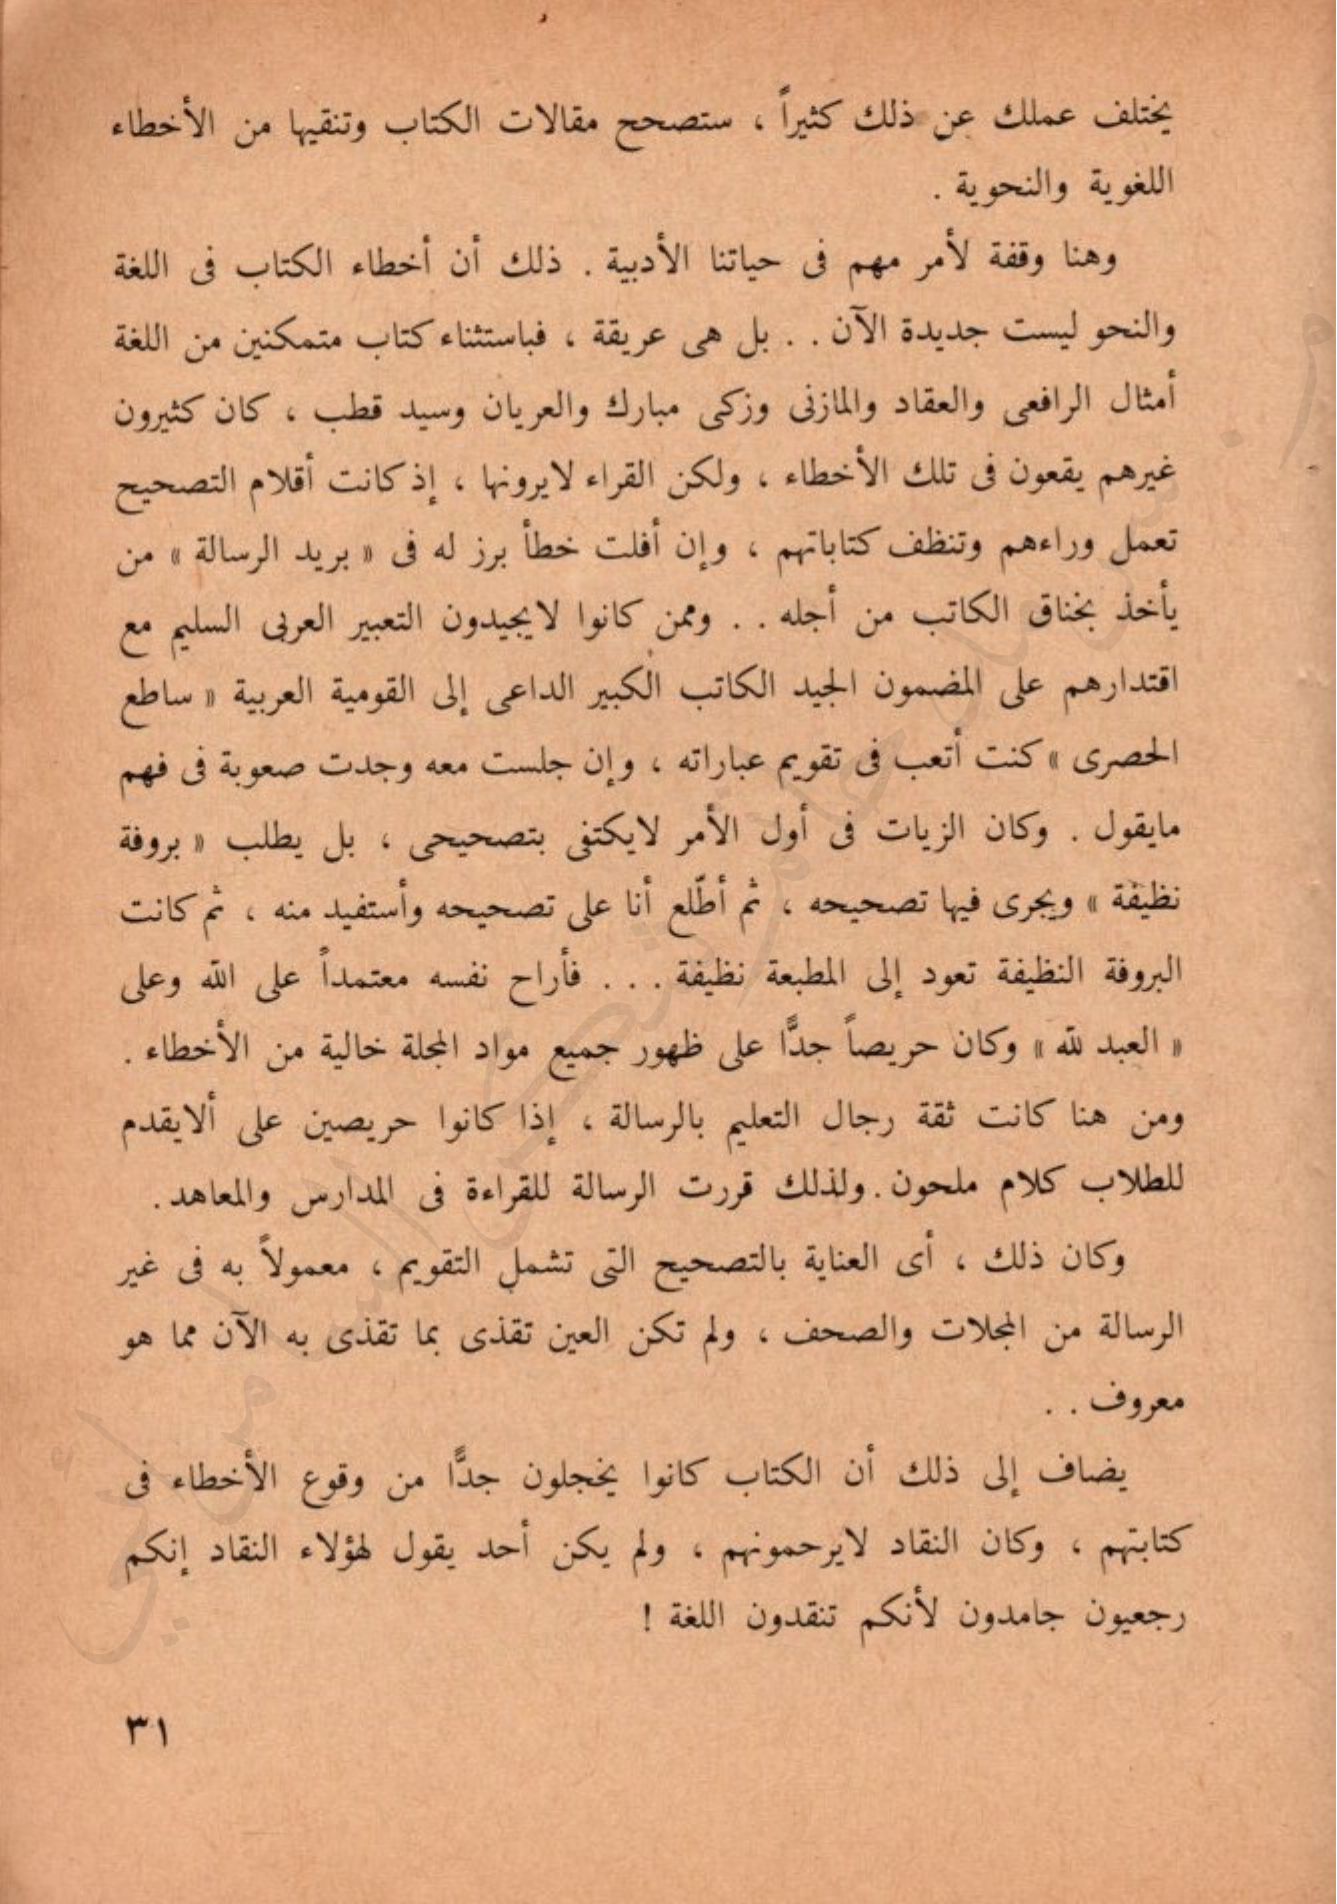 يختلف عملك عن ذلك كثيراً ، ستصحح مقالات الكتاب وتنقيها من الأخطاء
اللغوية والنحوية .
وهنا وقفة لأمر مهم فى حياتنا الأدبية . ذلك أن أخطاء الكتاب فى اللغة
والنحو ليست جديدة الآن . . بل هى عريقة ، فباستثناء كتاب متمكنين من اللغة
أمثال الرافعى والعقاد والمازنى وزكى مبارك والعريان وسيد قطب ، كان كثيرون
غيرهم يقعون فى تلك الأخطاء ، ولكن القراء لايرونها ، إذ كانت أقلام التصحيح
تعمل وراءهم وتنظف كتاباتهم ، وإن أفلت خطأ برز له فى « بريد الرسالة » من
يأخذ بخناق الكاتب من أجله . . وممن كانوا لايجيدون التعبير العربى السليم مع
اقتدارهم على المضمون الجيد الكاتب الكبير الداعى إلى القومية العربية « ساطع
الحصرى » كنت أتعب فى تقويم عباراته ، وإن جلست معه وجدت صعوبة فى فهم
مايقول . وكان الزيات فى أول الأمر لايكتفى بتصحيحى ، بل يطلب « بروفة
نظيفة » ويجرى فيها تصحيحه ، ثم أطّلع أنا على تصحيحه وأستفيد منه ، ثم كانت
البروفة النظيفة تعود إلى المطبعة نظيفة . . . فأراح نفسه معتمداً على الله وعلى
« العبد لله » وكان حريصاً جدًّا على ظهور جميع مواد المجلة خالية من الأخطاء .
ومن هنا كانت ثقة رجال التعليم بالرسالة ، إذا كانوا حريصين على ألايقدم
للطلاب كلام ملحون . ولذلك قررت الرسالة للقراءة فى المدارس والمعاهد .
وكان ذلك ، أى العناية بالتصحيح التى تشمل التقويم ، معمولاً به فى غير
الرسالة من المجلات والصحف ، ولم تكن العين تقذى بما تقذى به الآن مما هو
معروف . .
يضاف إلى ذلك أن الكتاب كانوا يخجلون جدًّا من وقوع الأخطاء فى
كتابتهم ، وكان النقاد لايرحمونهم ، ولم يكن أحد يقول لهؤلاء النقاد إنكم
رجعيون جامدون لأنكم تنقدون اللغة !
٣١